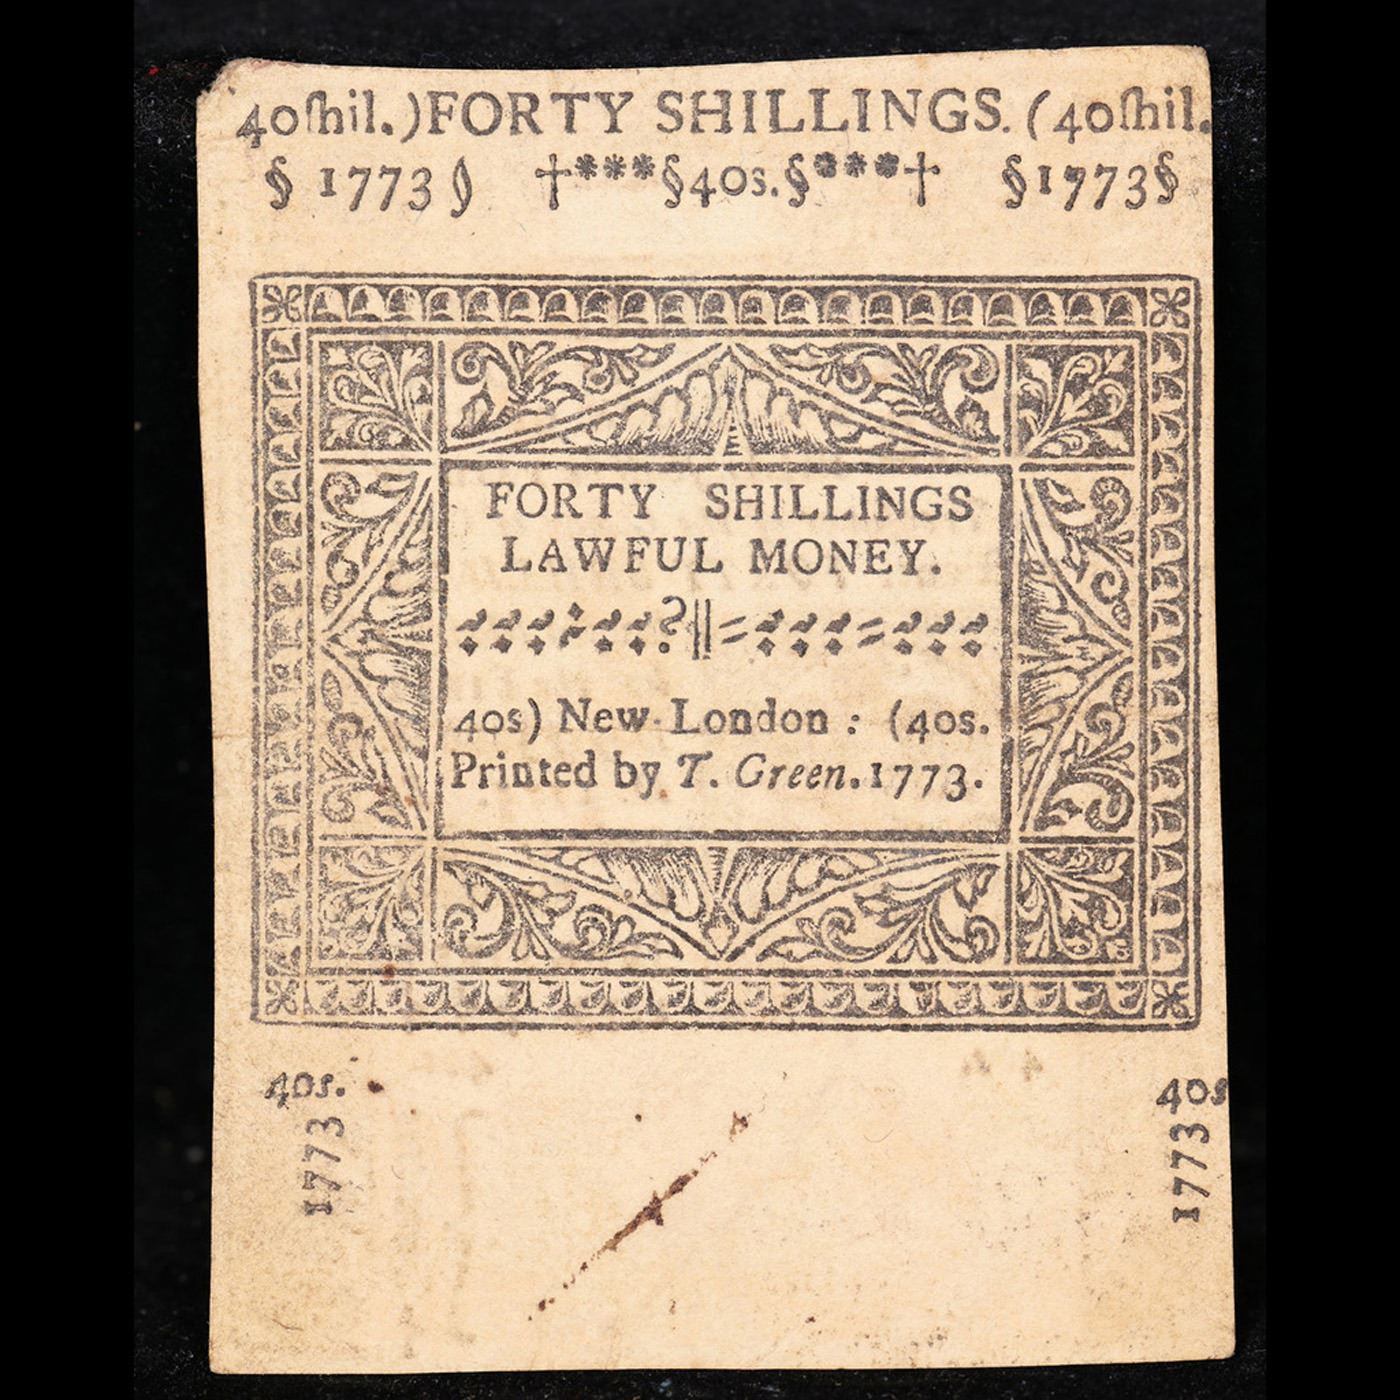 40ſhil.) FORTY SHILLINGS. (40ſhil.
§ 1773 § †***§40s.§***† §1773§
FORTY SHILLINGS
LAWFUL MONEY.
40s) New-London : (40s.
Printed by T. Green. 1773.
40s. 40s
1773 1773